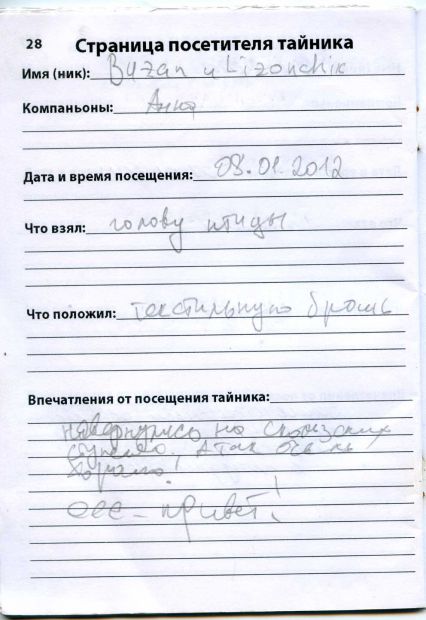 28 Страница посетителя тайника
Имя (ник): Buzan и Lizonchik
Компаньоны: Аня
Дата и время посещения: 08.01.2012
Что взял: голову птицы
Что положил: текстильную брошь
Впечатления от посещения тайника:
навернулись на скользких
А так очень
хорошо!
ееее - привет!